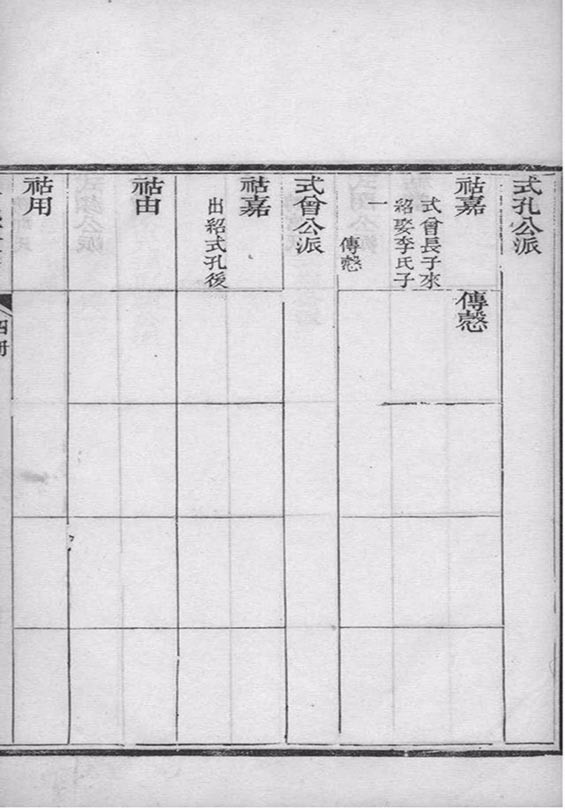 式孔公派
祜嘉
式曾長子來
紹娶李氏子
一
傳慤
傳慤
式曾公派
祜嘉
出紹式孔後
祜由
祜用
四册